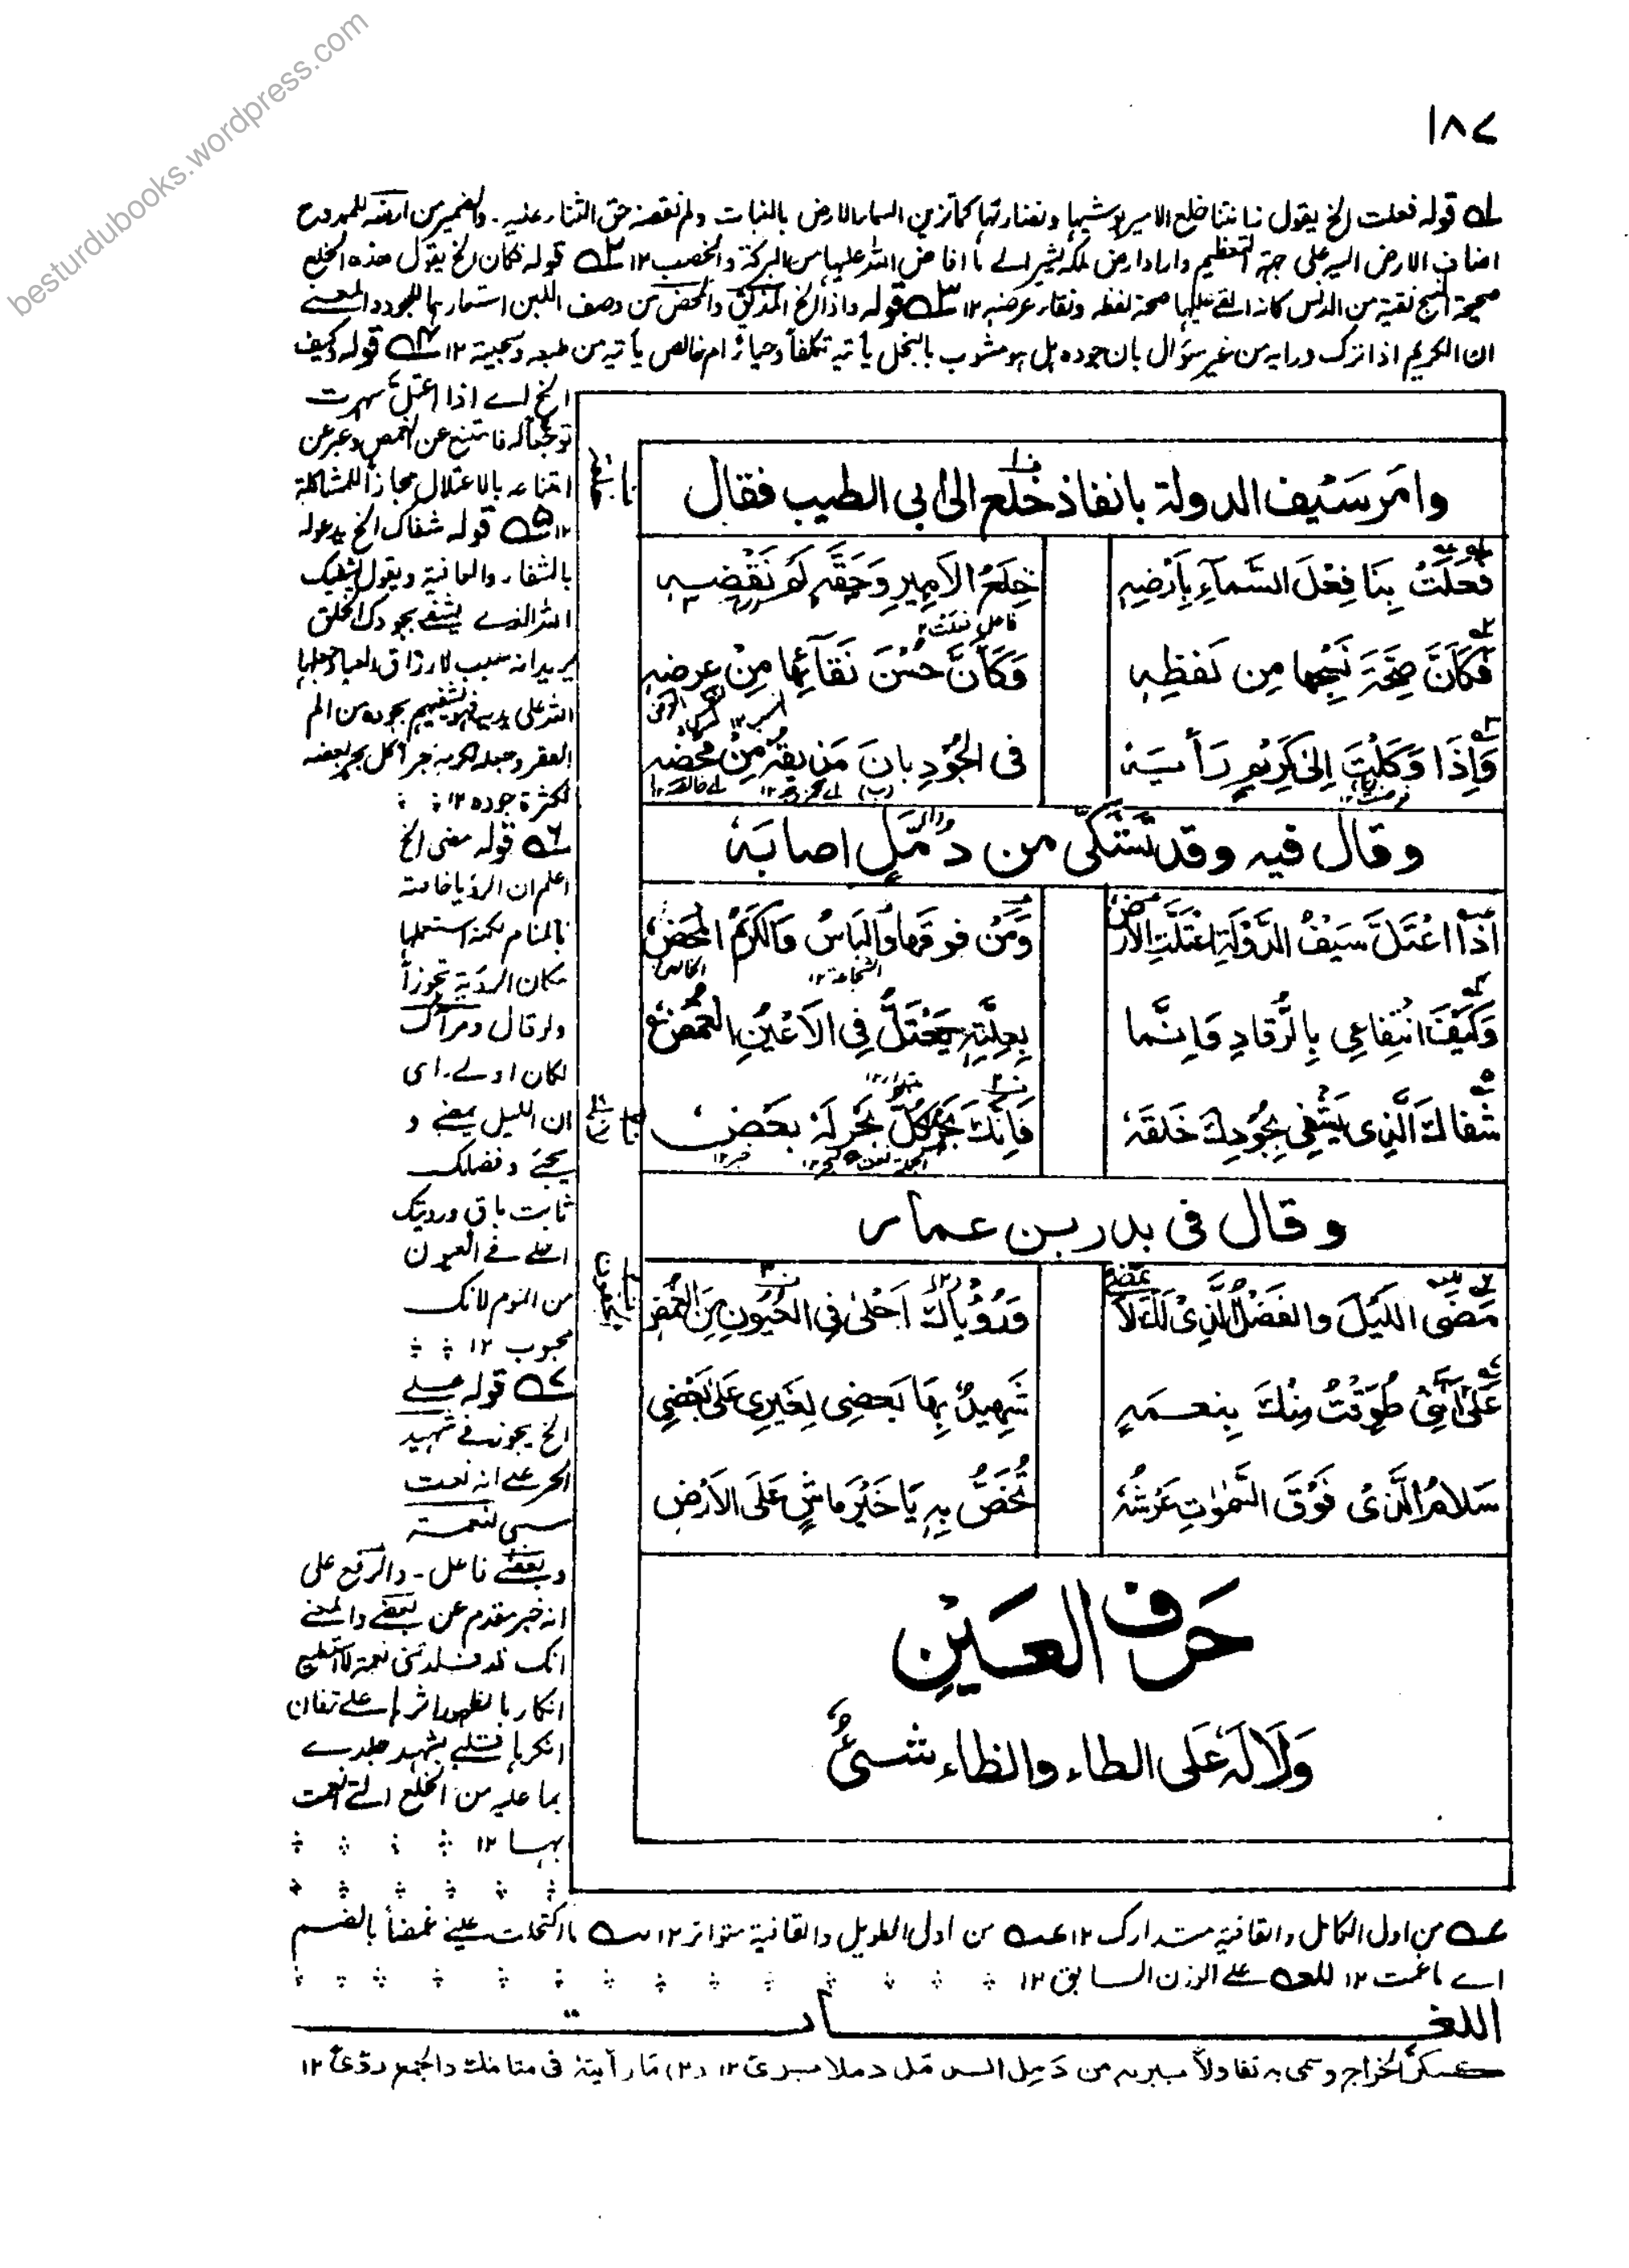 besturdubooks.wordpress.com
١٨٧
١ قوله فعلت الخ يقول زانتنا خلع الامير بوشيها ونضارتها كما تزين السماء الارض بالنبات ولم نقضه حق الثناء عليه۔ والضمير من ارضه للممدوح
اضاف الارض اليه على جهة التعظيم واراد ارض ملكه يشير الى ما افاض الله عليها من البركة والخصب ١٢ ٢ قوله فكان الخ يقول هذه الخلع
صحيحة النسج نقية من الدنس كانه القى عليها صحة لفظه ونقاء عرضه ١٢ ٣ قوله واذا الخ المذق والمحض من وصف اللبن استعار بها للجود والمعنى
ان الكريم اذا ترك ورايه من غير سؤال بان جوده هل هو مشوب بالبخل يأتيه تكلفاً وحياءً ام خالص يأتيه من طبعه وسجيته ١٢ ٤ قوله وكيف
الخ اے اذا اعتل سهرت
توجعاً له فامتنع عن الغمض وعبر عن
امتناعه بالاعتلال مجازاً للمشاكلة
١٢ ٥ قوله شفاك الخ يدعو له
بالشفاء والعافية ويقول يشفيك
الله الذى يشفى بجودك الخلق
يريد انه سبب لارزاق العباد جعلها
الله على يديه فهو يشفيهم بجوده من الم
الفقر وجعله لكرمه بحراً كل بحر بعضه
لكثرة جوده ١٢
٦ قوله مضى الخ
اعلم ان الرؤيا خاصة
بالمنام لكنه استعملها
مكان الرؤية تجوزاً
ولو قال ومرآك
لكان اولے۔ اى
ان الليل يمضى و
يجئ وفضلك
ثابت باق ورؤيتك
احلى فى العيون
من النوم لانك
محبوب ١٢
٧ قوله على
الخ يجوز فى شهيد
الجر على انه نعت
سببى لنعمة
وبعضى فاعل۔ والرفع على
انه خبر مقدم عن بعضى والمعنى
انك قد قلدتنى نعمة لا استطيع
انكارها لظهور اثرها على فان
انكرها قلبى يشهد جلدى
بما عليه من الخلع التى انعمت
بها ١٢
وامر سَيف الدولة بانفاذ خلع الى ابى الطيب فقال
فَعَلَتْ بِنَا فِعْلَ السَّمَآءِ بِاَرْضِهٖ خِلَعُ الاَمِيرِ وَحَقَّهٗ لَمْ نَقْضِهٖ
فاعل فعلت ١٢
فَكَاَنَّ صِحَّةَ نَسْجِها مِن لَفظِهٖ وَكَاَنَّ حُسْنَ نَقَآئِهَا مِنْ عِرضِهٖ
وَاِذَا وَكَلْتَ اِلىٰ كَرِيْمٍ رَأيَهٗ فى الجُوْدِ بانَ مَذِيقُهٗ مِنْ مَحْضِهٖ
وقال فيه وقد تشكّى من دُمّلٍ اصابَهٗ
اِذَا اعْتَلَّ سَيْفُ الدَّوْلَةِ اعْتَلَّتِ الاَرضُ وَمَنْ فوقَها وَالبَاسُ وَالكَرَمُ المَحْضُ
الشجاعة ١٢ الخالص
وَكَيْفَ انْتِفَاعِى بِالرُّقادِ وَاِنَّما بِعِلَّتِهٖ يَعْتَلُّ فِى الاَعْيُنِ الغُمْضُ
شَفَاكَ الَّذِى يَشْفِى بِجُوْدِكَ خَلقَهٗ فَاِنَّكَ بَحْرٌ كُلُّ بَحْرٍ لَهٗ بعضُ
خبر ١٢
وقال فى بدر بن عمار
مَضَى اللَيْلُ والفَضْلُ الَّذِىْ لَكَ لَا يَمْضِى وَرُؤْيَاكَ اَحْلىٰ فِى العُيُونِ مِنَ الغُمْضِ
عَلىٰ اَنَّنِىْ طُوِّقْتُ مِنْكَ بِنعمَةٍ شَهِيدٌ بِهَا بَعضِى لِغَيرِى عَلىٰ بَعْضِى
سَلامُ الَّذِىْ فَوْقَ السَّمٰوٰتِ عَرْشُهٗ تُخَصُّ بِهٖ يَا خَيْرَ ماشٍ عَلَى الاَرْضِ
حَرف العَيْنِ
وَلَا لَهٗ عَلى الطاء والظاء شئٌ
عـه من اول الكامل والقافية متدارك ١٢ عـه من اول الطويل والقافية متواتر ١٢ سه ما اكتحلت عينى غمضاً بالضم
اے ما نمت ١٢ للعه على الوزن السابق ١٢
اللغـــات
كسكر الخراج وسمى به تفاولاً ببرءه من دَمِل دملا برئ ١٢ (٢) ما رأيته فى منامك والجمع رؤىً ١٢